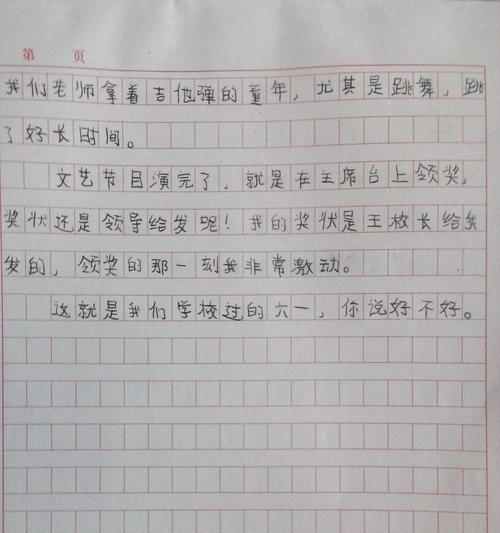 第 页
我们老师拿着吉他弹的童年，尤其是跳舞，跳
了好长时间。
文艺节目演完了，就是在主席台上领奖，
奖状还是领导给发呢！我的奖状是王校长给我
发的，领奖的那一刻我非常激动。
这就是我们学校过的六一，你说好不好。